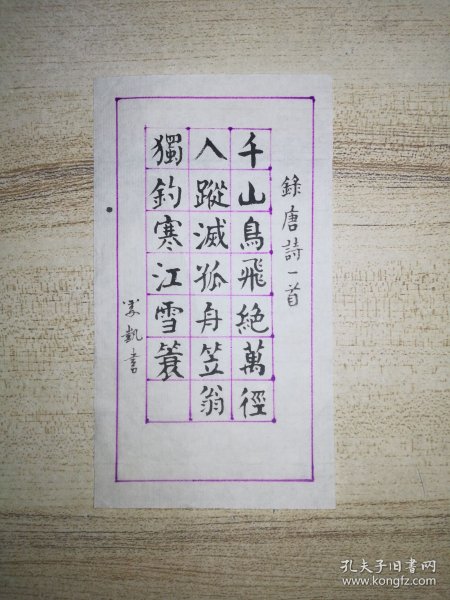 錄唐詩一首
千山鳥飛絕萬徑
人蹤滅孤舟笠翁
獨釣寒江雪簑
凱書
孔夫子旧书网
www.kongfz.com